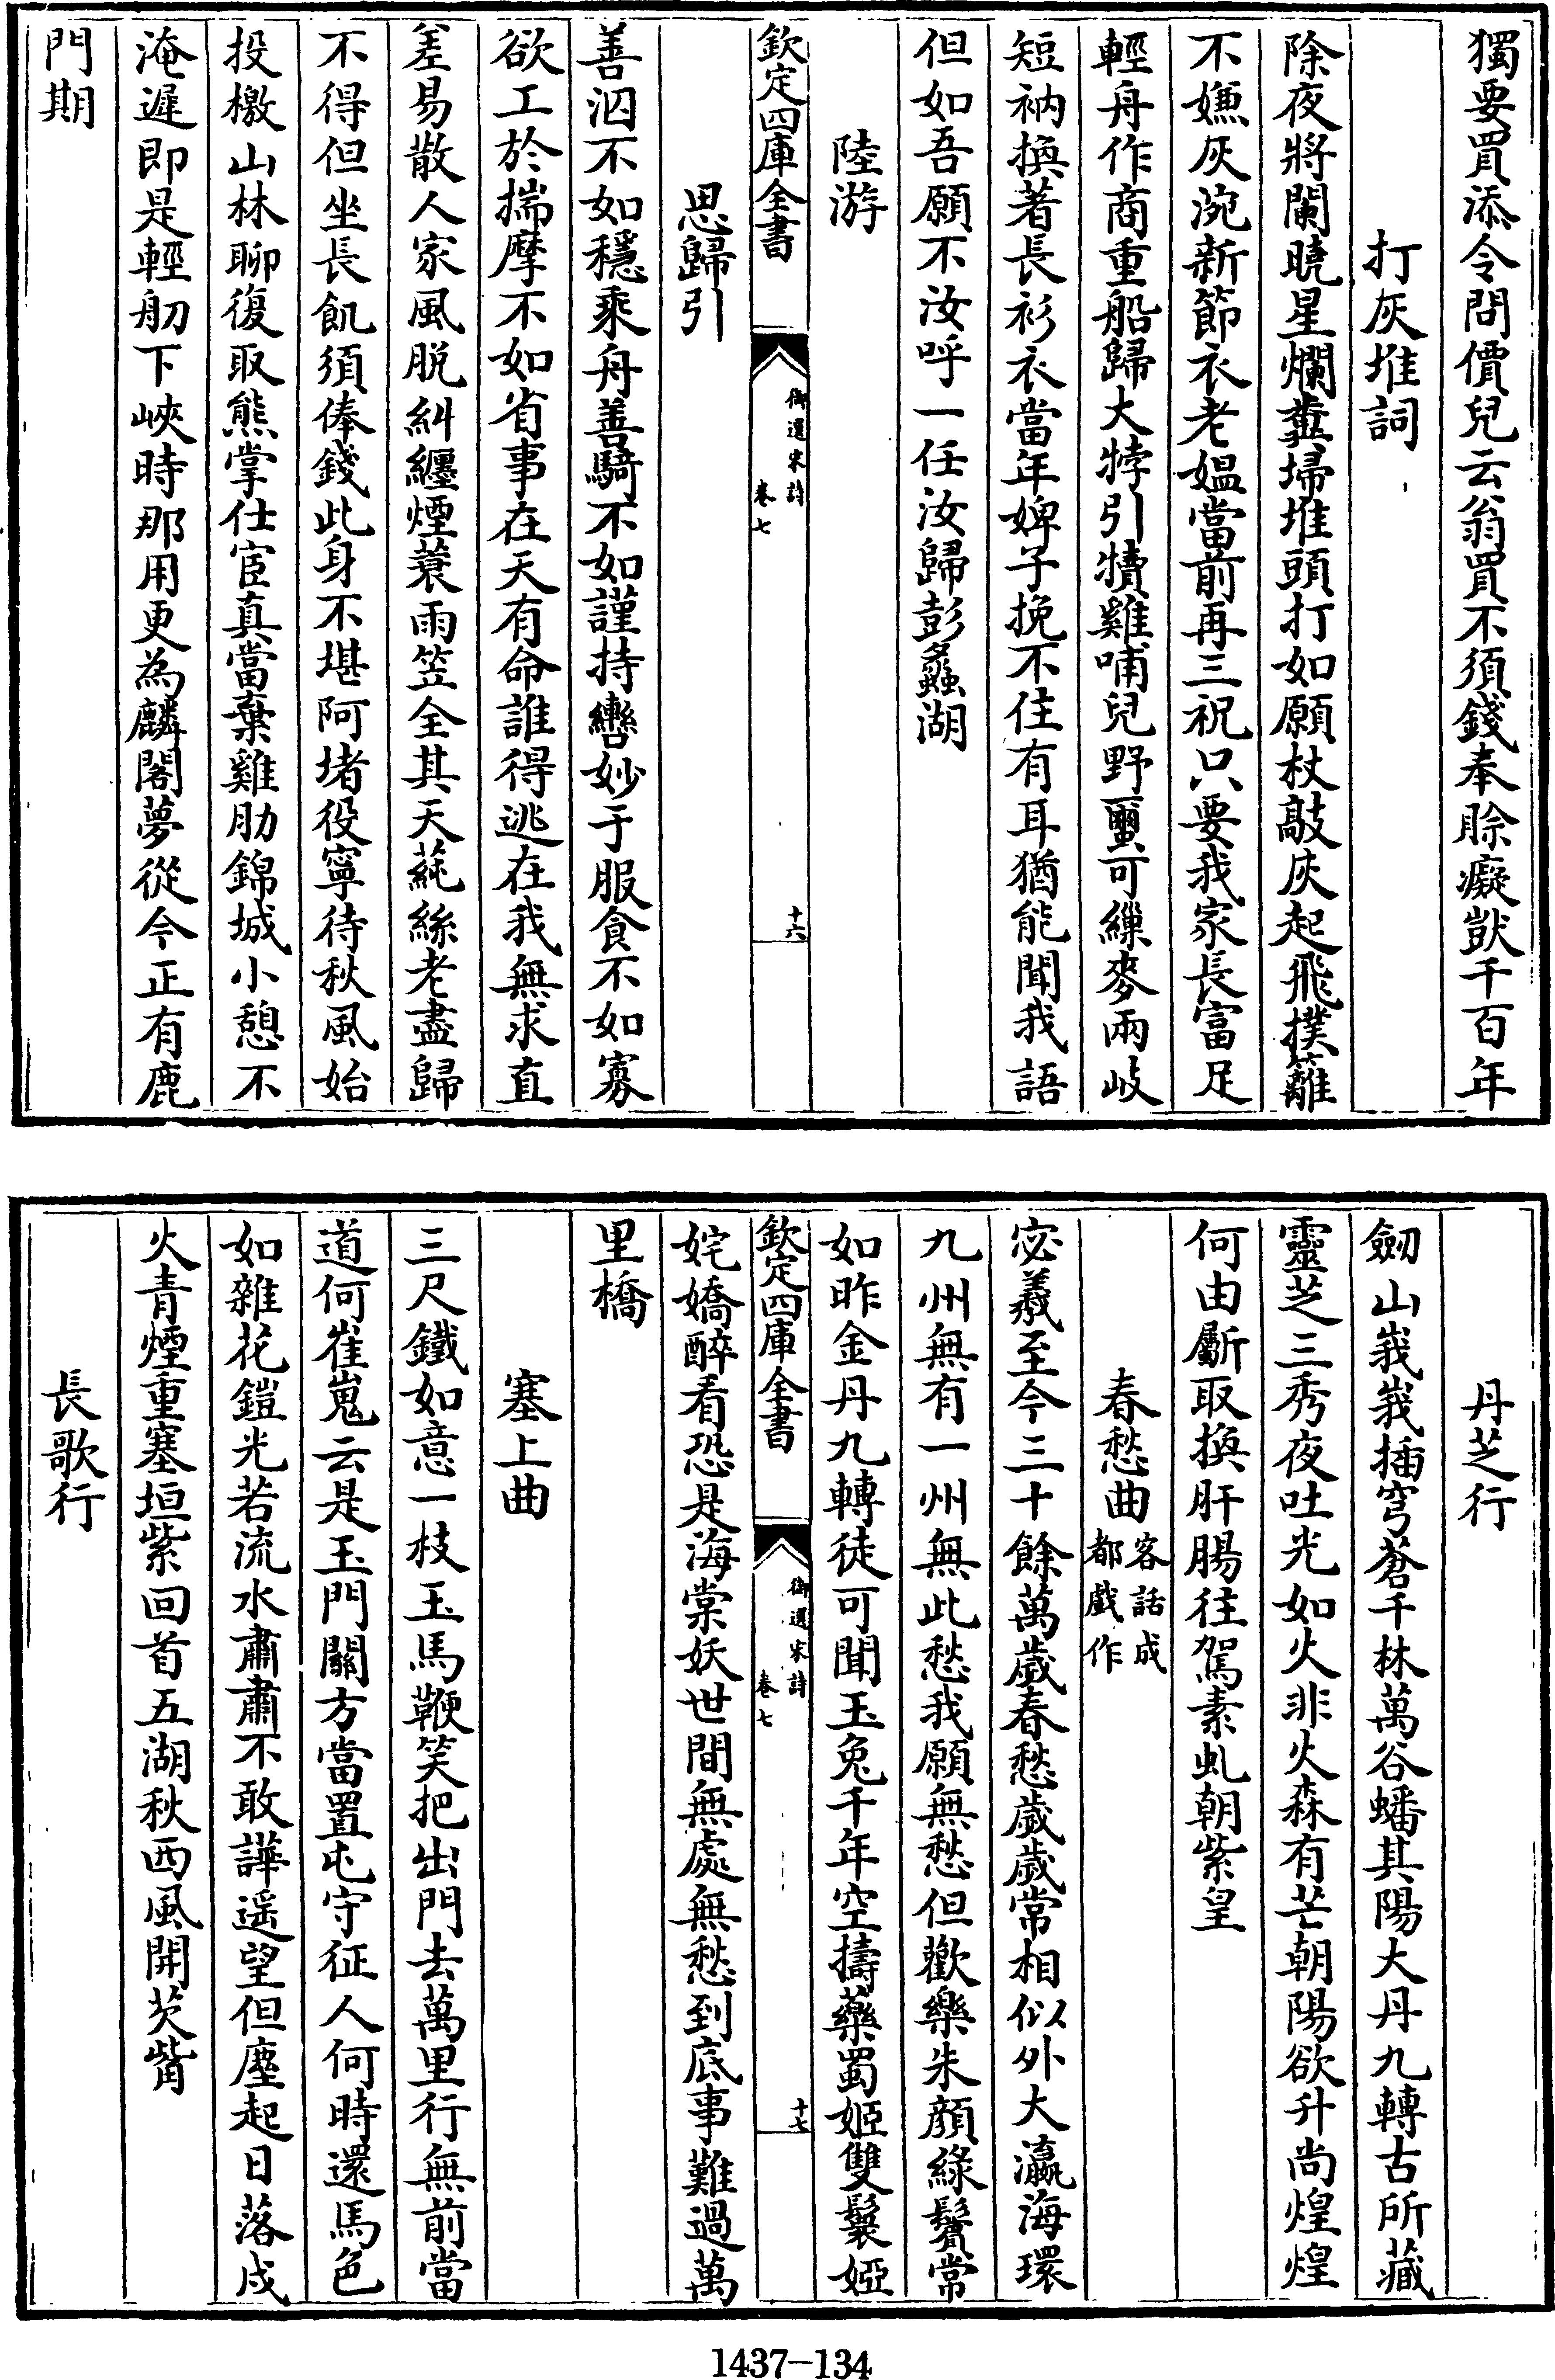 獨要買添令問價兒云翁買不須錢奉賒癡獃千百年
打灰堆詞
除夜將闌曉星爛糞埽堆頭打如願杖敲灰起飛撲籬
不嫌灰涴新節衣老媪當前再三祝只要我家長富足
輕舟作商重船歸大牸引犢雞哺兒野繭可繅麥兩岐
短衲換著長衫衣當年婢子挽不住有耳猶能聞我語
但如吾願不汝呼一任汝歸彭蠡湖
陸游
欽定四庫全書
御選宋詩
卷七
十六
思歸引
善泅不如穩乘舟善騎不如謹持轡妙于服食不如寡
欲工於揣摩不如省事在天有命誰得逃在我無求直
差易散人家風脱糾纒煙蓑雨笠全其天蓴絲老盡歸
不得但坐長飢須俸錢此身不堪阿堵役寧待秋風始
投檄山林聊復取熊掌仕宦真當棄雞肋錦城小憩不
淹遲即是輕舠下峽時那用更為麟閣夢從今正有鹿
門期
丹芝行
劒山峩峩插穹蒼千林萬谷蟠其陽大丹九轉古所藏
靈芝三秀夜吐光如火非火森有芒朝陽欲升尚煌煌
何由斸取換肝腸往駕素虬朝紫皇
春愁曲客話成都戲作
宓羲至今三十餘萬歲春愁歲歲常相似外大瀛海環
九州無有一州無此愁我願無愁但歡樂朱顏緑鬢常
如昨金丹九轉徒可聞玉兔千年空擣藥蜀姬雙鬟婭
欽定四庫全書
御選宋詩
卷七
十七
姹嬌醉看恐是海棠妖世間無處無愁到底事難過萬
里橋
塞上曲
三尺鐵如意一枝玉馬鞭笑把出門去萬里行無前當
道何崔嵬云是玉門關方當置屯守征人何時還馬色
如雜花鎧光若流水肅肅不敢譁遥望但塵起日落戍
火青煙重塞垣紫回首五湖秋西風開芡觜
長歌行
1437-134